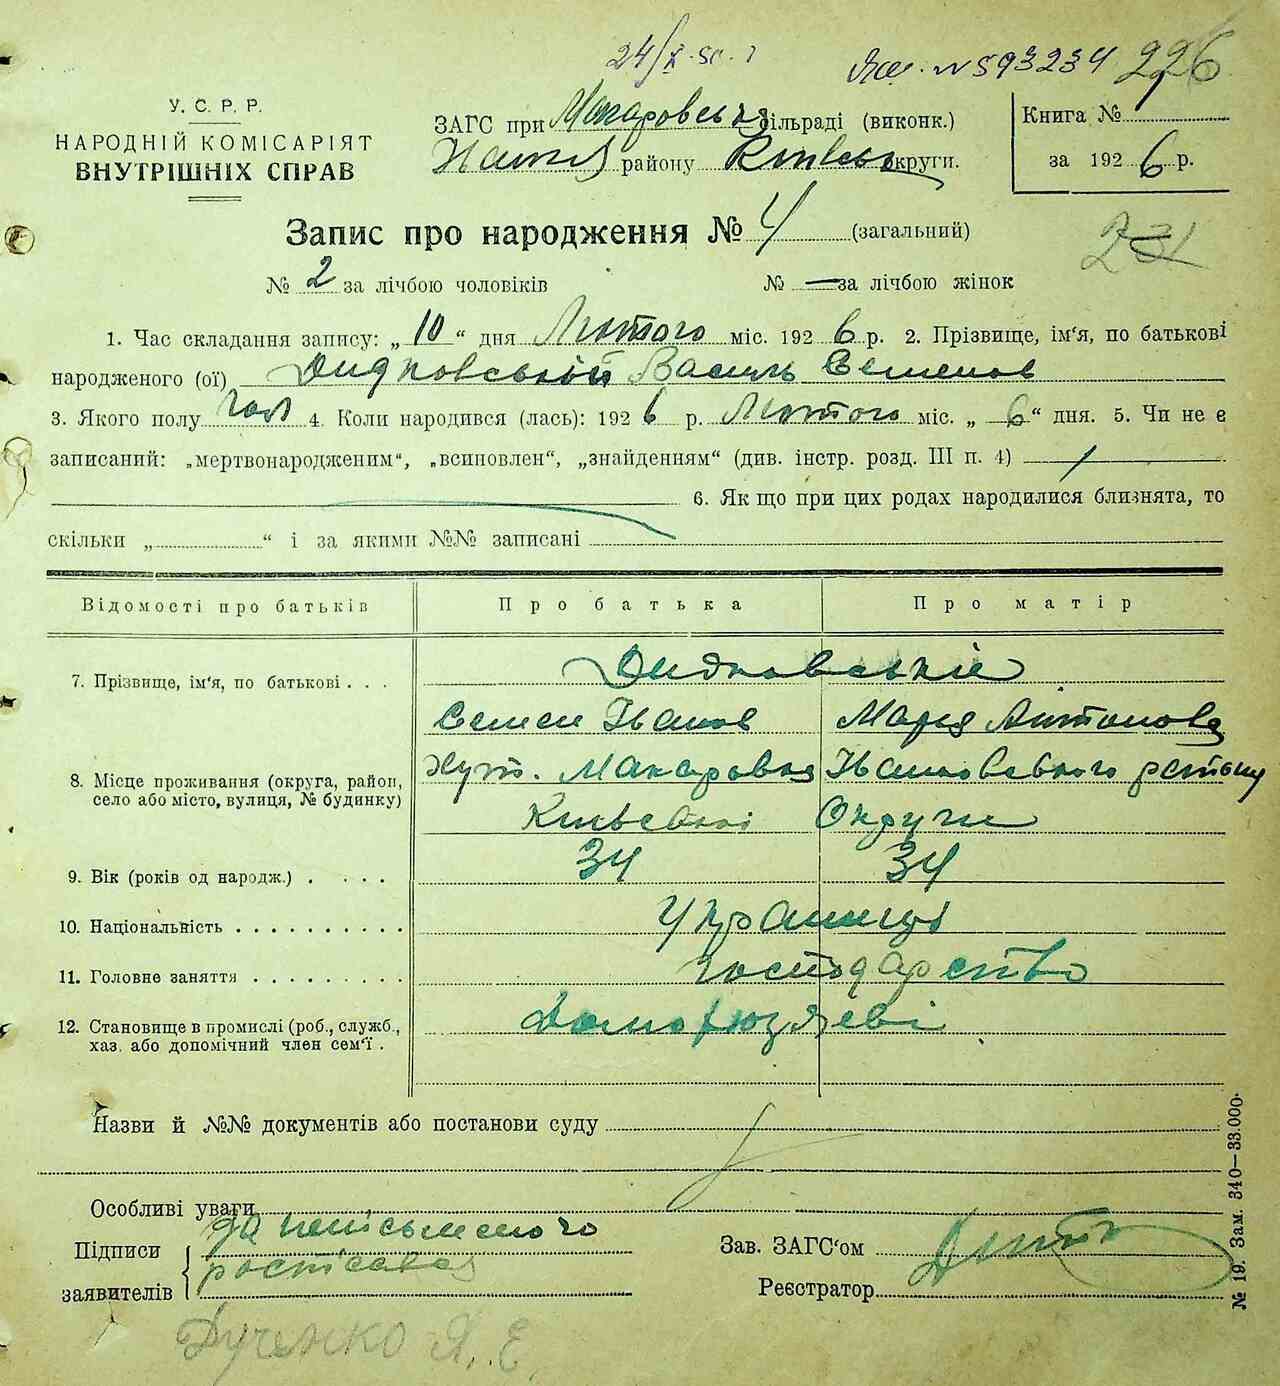 24/X-50 г
№ 593234 226
У. С. Р. Р.
НАРОДНІЙ КОМІСАРІЯТ
ВНУТРІШНІХ СПРАВ
ЗАГС при Макаровська сільраді (виконк.)
району Київськ округи.
Книга №
за 1926 р.
Запис про народження № 4 (загальний)
231
№ 2 за лічбою чоловіків № — за лічбою жінок
1. Час складання запису: „10“ дня Лютого міс. 1926 р. 2. Прізвище, ім'я, по батькові
народженого (ої) Дидковський Василь Семенов
3. Якого полу чол 4. Коли народився (лась): 1926 р. Лютого міс. „6“ дня. 5. Чи не є
записаний: „мертвонародженим“, „всиновлен“, „знайденням“ (див. інстр. розд. III п. 4)
6. Як що при цих родах народилися близнята, то
скільки „ “ і за якими №№ записані
Відомості про батьків Про батька Про матір
7. Прізвище, ім'я, по батькові . . . Дидковські
Семен Іванов Мария Антонова
8. Місце проживання (округа, район, село або місто, вулиця, № будинку) Хут. Макаровка Іванковського
Округи
9. Вік (років од народж.) . . . . 34 34
10. Національність . . . . . . . . . . Українці
11. Головне заняття . . . . . . . . . господарство
12. Становище в промислі (роб., служб.,
хаз. або допомічний член сем'ї .
Назви й №№ документів або постанови суду
Особливі уваги
Підписи за неписьменого
заявителів
Зав. ЗАГС'ом
Реєстратор
Дученко Я. Е
№ 19. Зам. 340—33.000.